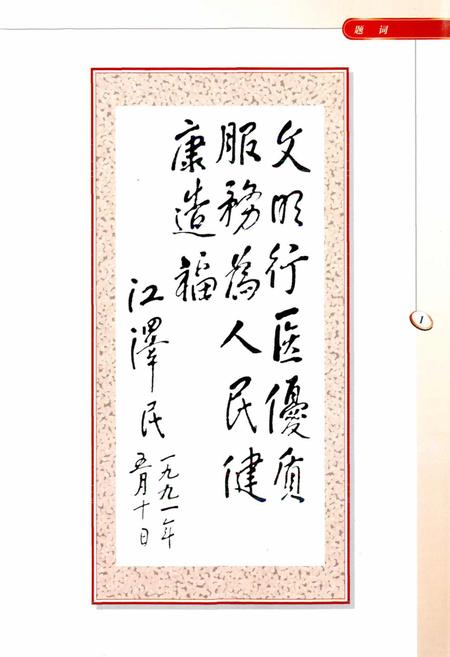 题词
文明行医優质
服務為人民健
康造福
江澤民
一九九一年
五月十日
1